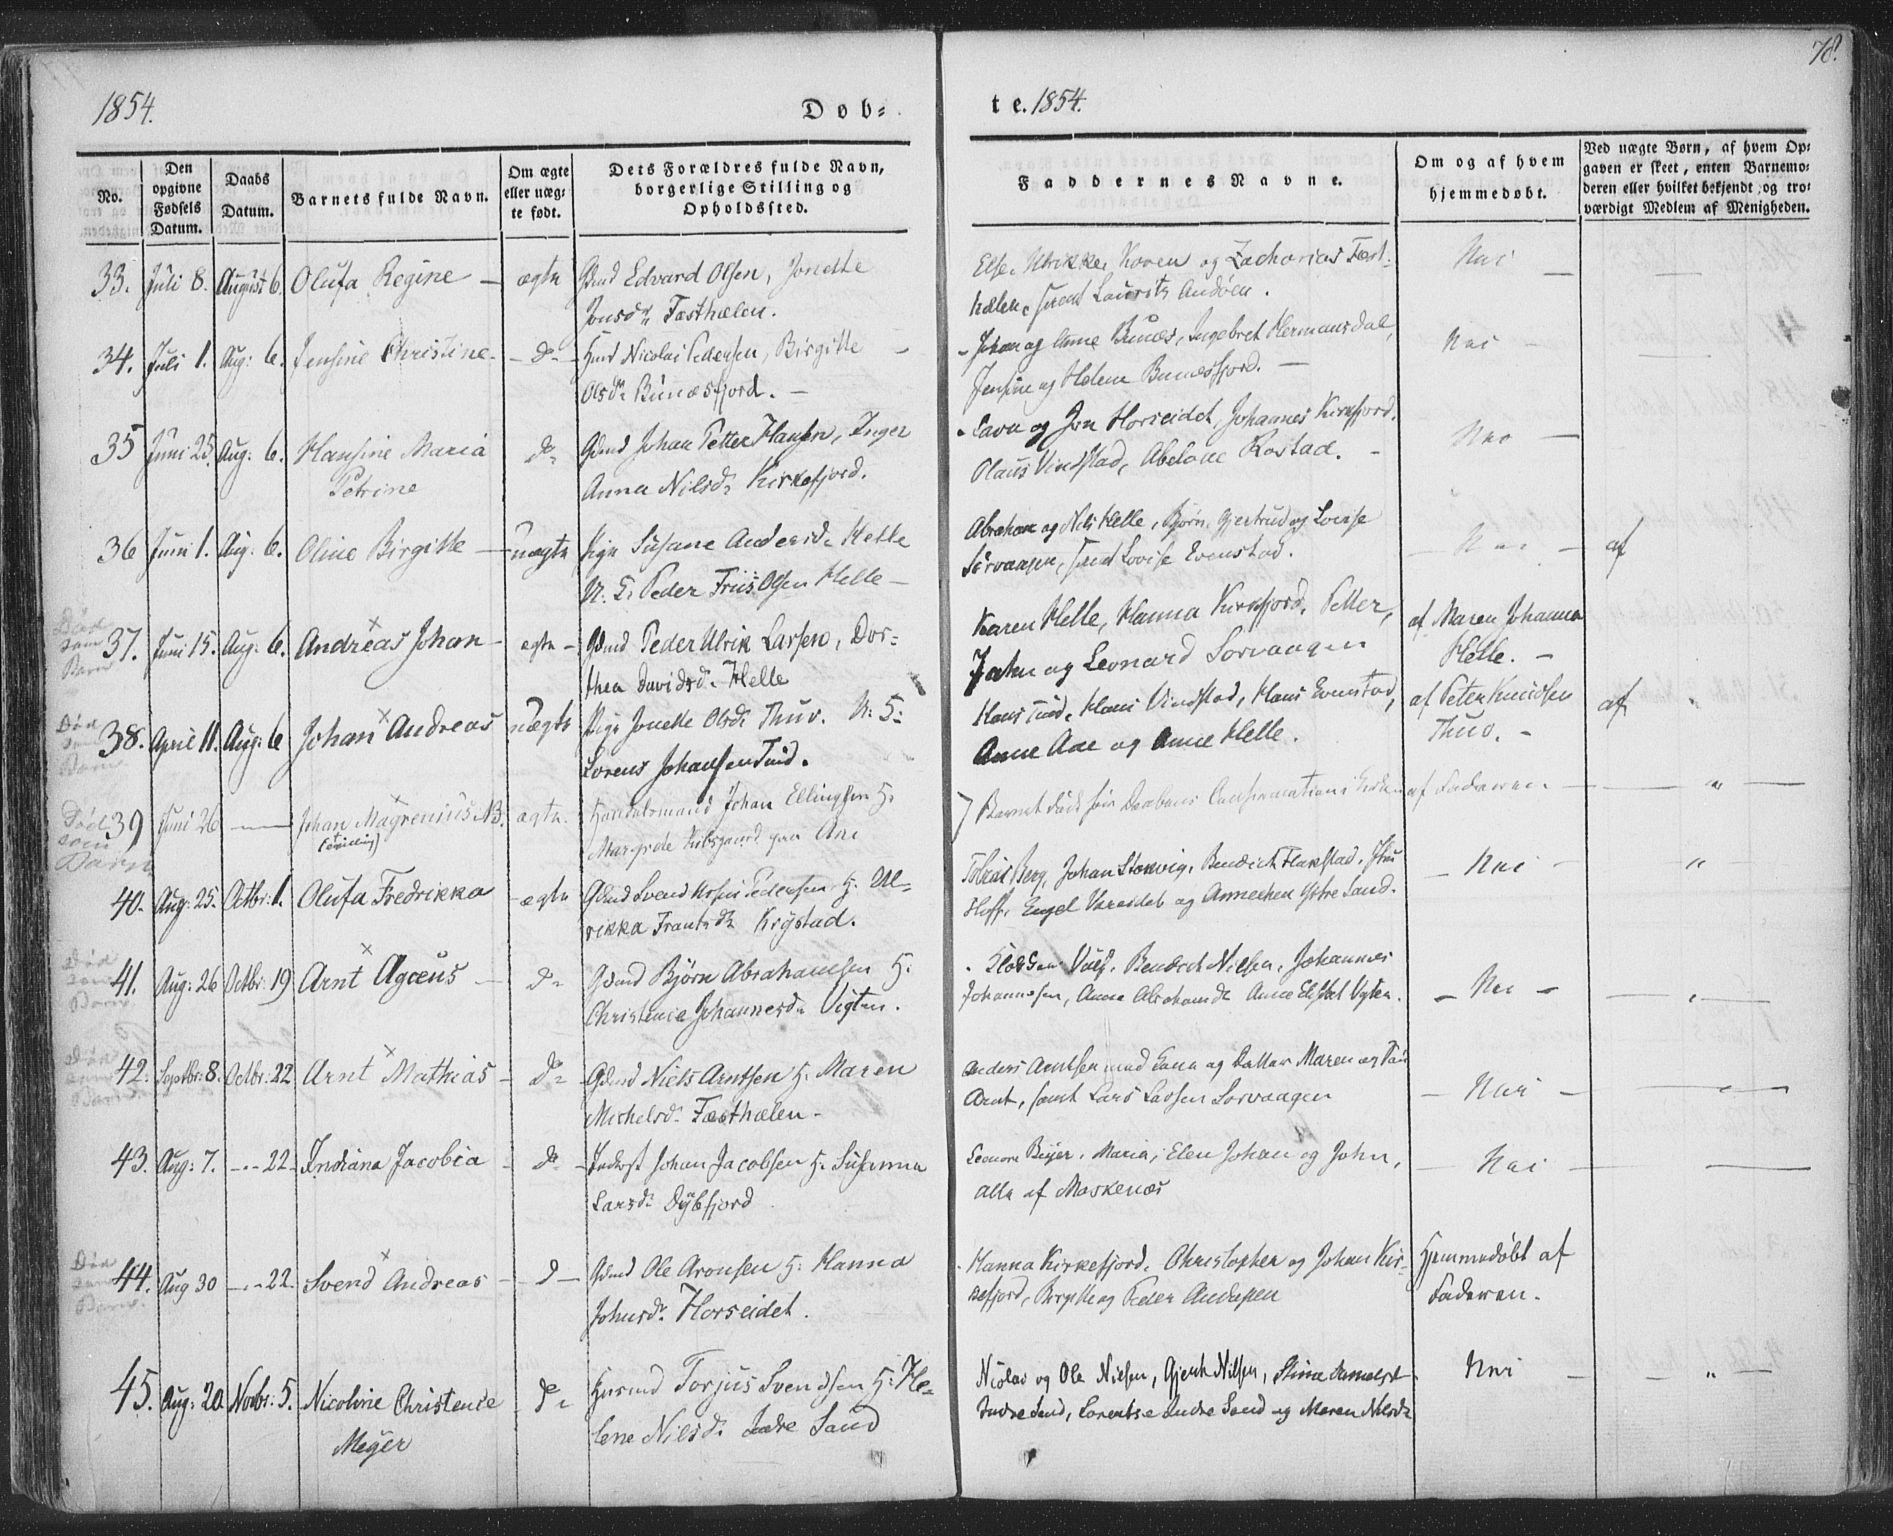 1854.
Døb-
te. 1854.
78.
No.
Den opgivne Fødsels Datum.
Daabs Datum.
Barnets fulde Navn.
Om ægte eller uæg-te født.
Dets Forældres fulde Navn, borgerlige Stilling og Opholdssted.
Faddernes Navne.
Om og af hvem hjemmedøbt.
Ved uægte Børn, af hvem Op-gaven er skeet, enten Barnemo-deren eller hvilket bekjendt og tro-værdigt Medlem af Menigheden.
33. Juli 8. August 6. Olufa Regine — ægte Gmd Edvard Olsen, Jonette
Jonsdr Festhælen.
Else, Ulrikke, Koven og Zacharias Fest-
hælen, samt Laurits Andøen.
Nei —
34. Juli 1. Aug: 6. Jensine Christine — do — Huusmd Nicolai Pedersen, Birgitte —
Olsdr Bunæsfjord. —
Johan og Anne Bunæs, Ingebret Hermansdal,
Jensine og Helene Bunæsfjord. —
Nei —
35 Juni 25. Aug: 6. Hansine Maria
Petrine
do Gmd Johan Petter Hansen, Inger
Anna Nilsdr Kirkefjord.
og Jon Horseidet, Johannes Kirkfjord,
Olaus Vindstad, Abelone Rostad. —
Nei —
36 Juni 1. Aug: 6. Oline Birgitte — uægte Pige Susane Andersdr Helle
U. F. Peder Friis Olsen Helle —
Abraham og Nils Helle, Bjørn, Gjertrud og Lovise
Sørvaagen, samt Lovise Evenstad.
— Nei — af
Død
samme
Barn
37. Juni 15. Aug: 6. Andreas Johan — ægte — Gmd Peder Ulrik Larsen, Dor-
thea Davidsdr Helle
Karen Helle, Hanna Kirkfjord, Petter,
John og Leonard Sørvaagen
af Maren Johanna
Helle. —
Død
Barn
38. April 11. Aug: 6 Johan Andreas uægte Pige Jonette Olsdr Thuv. U: F:
Lorens Johansen Tind.
Hans Tind, Hans Vindstad, Hans Evenstad,
Anne Aae og Anne Helle.
af Peter Knudsen
Thuv. —
af
Død
som
Barn
39 Juni 26 — Johan Magrenius NB. ægte. Handelsmand Johan Ellingsen H:
Margrete Kibsgaard paa Aae
Barnet døde før Daabens Confirmation i Kirken
af Faderen. —
40. Aug: 25. Octbr: 1. Olufa Fredrikka — ægte Gmd Svend Pedersen H: Ul-
rikka Frantsdr Krystad.
Tobias Berg, Johan Storvig, Bendick Flakstad,
Hoff, Engel Vareidet og Annechen Ystre Sand.
— Nei —
Død
Barn
41. Aug: 26 Octbr: 19 Arnt Agæus — do Gmd Bjørn Abrahamsen H:
Christence Johannesdr Vigten.
Bendick Nielsen, Johannes
Johannesen, Anne Abrahamsdr Anne Elisbet Vigten.
— Nei —
Død
Barn
42. Septbr: 8. Octbr: 22 Arnt Mathias — do Gmd Niels Arntsen H: Maren
Michelsdr Festhælen —
Anders Arntsen med Kone og Datter Maren og
Arnt, samt Lars Larsen Sørvaagen
— Nei —
43. Aug: 7. — 22 — Indiana Jacobia — do — Inderst Johan Jacobsen H: Susanna
Larsdr Dybfjord
Leonora Beyer, Maria, Elen Johan og John,
alle af Moskenæs
— Nei —
Død
Barn.
44. Aug 30 — 22. Svend Andreas — do — Gmd Ole Aronsen H: Hanna
Johnsdr Horseidet.
Hanna Kirkefjord, Christopher og Johan Kir-
kefjord, Birgitte og Peder Andersen
Hjemmedøbt af
Faderen.
45. Aug: 20. Novbr: 5. Nicoline Christence
Meyer
do Huusmd Torjus Svendsen H: He-
lene Nilsdr Indre Sand
Nicolai og Ole Nielsen, Gjert Nilsen,
Indre Sand, Lorentse Indre Sand og Maren Nilsdr
Nei —